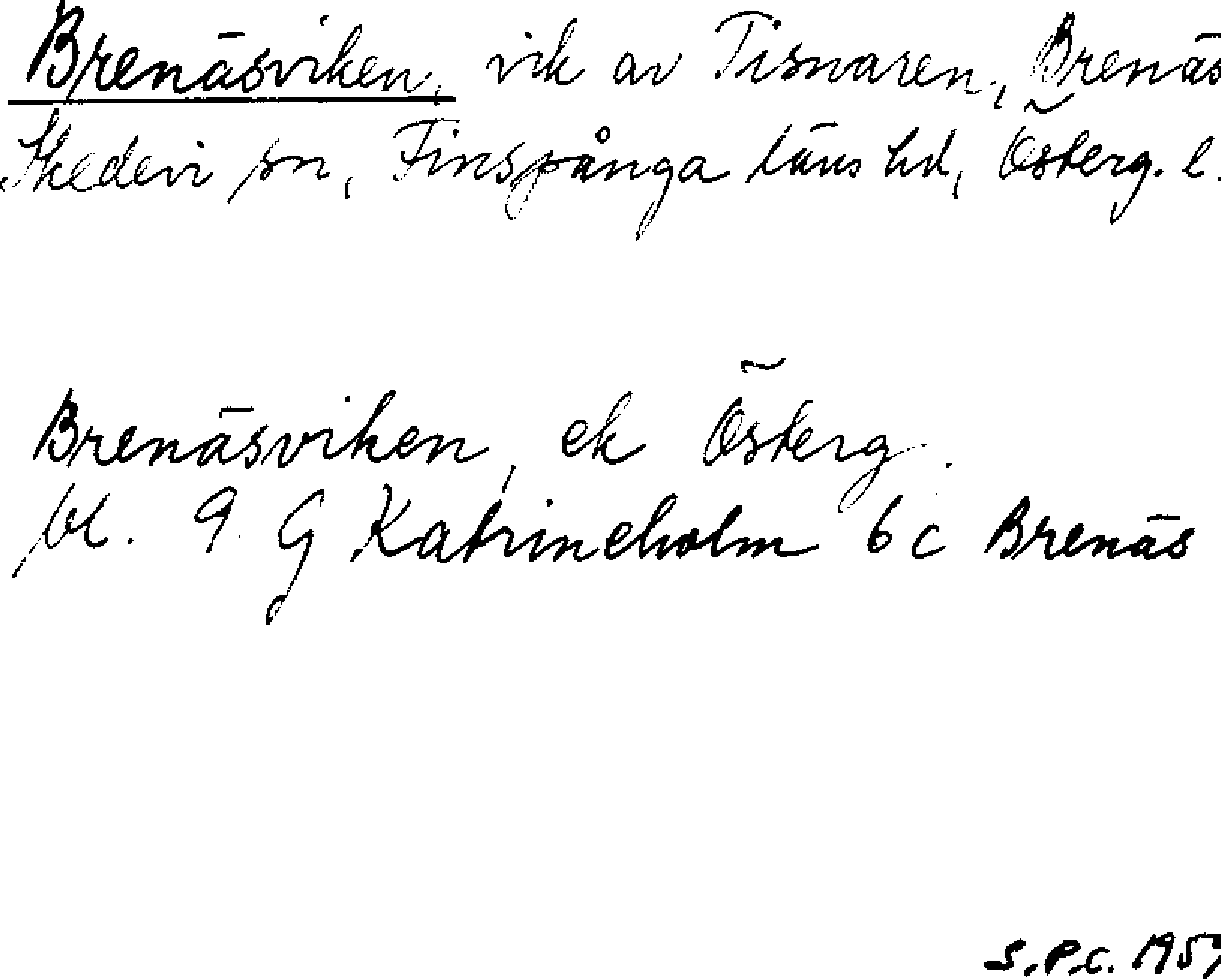 Brenäsviken, vik av Tisnaren, Brenäs
Skedevi sn, Finspånga läns hd, Österg. l.
Brenäsviken, ek Österg.
bl. 9 G Katrineholm 6 c Brenäs
S.P.C.